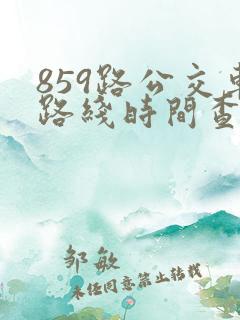 859路公交車
路綫時間查
邹敏
未经同意禁止转载